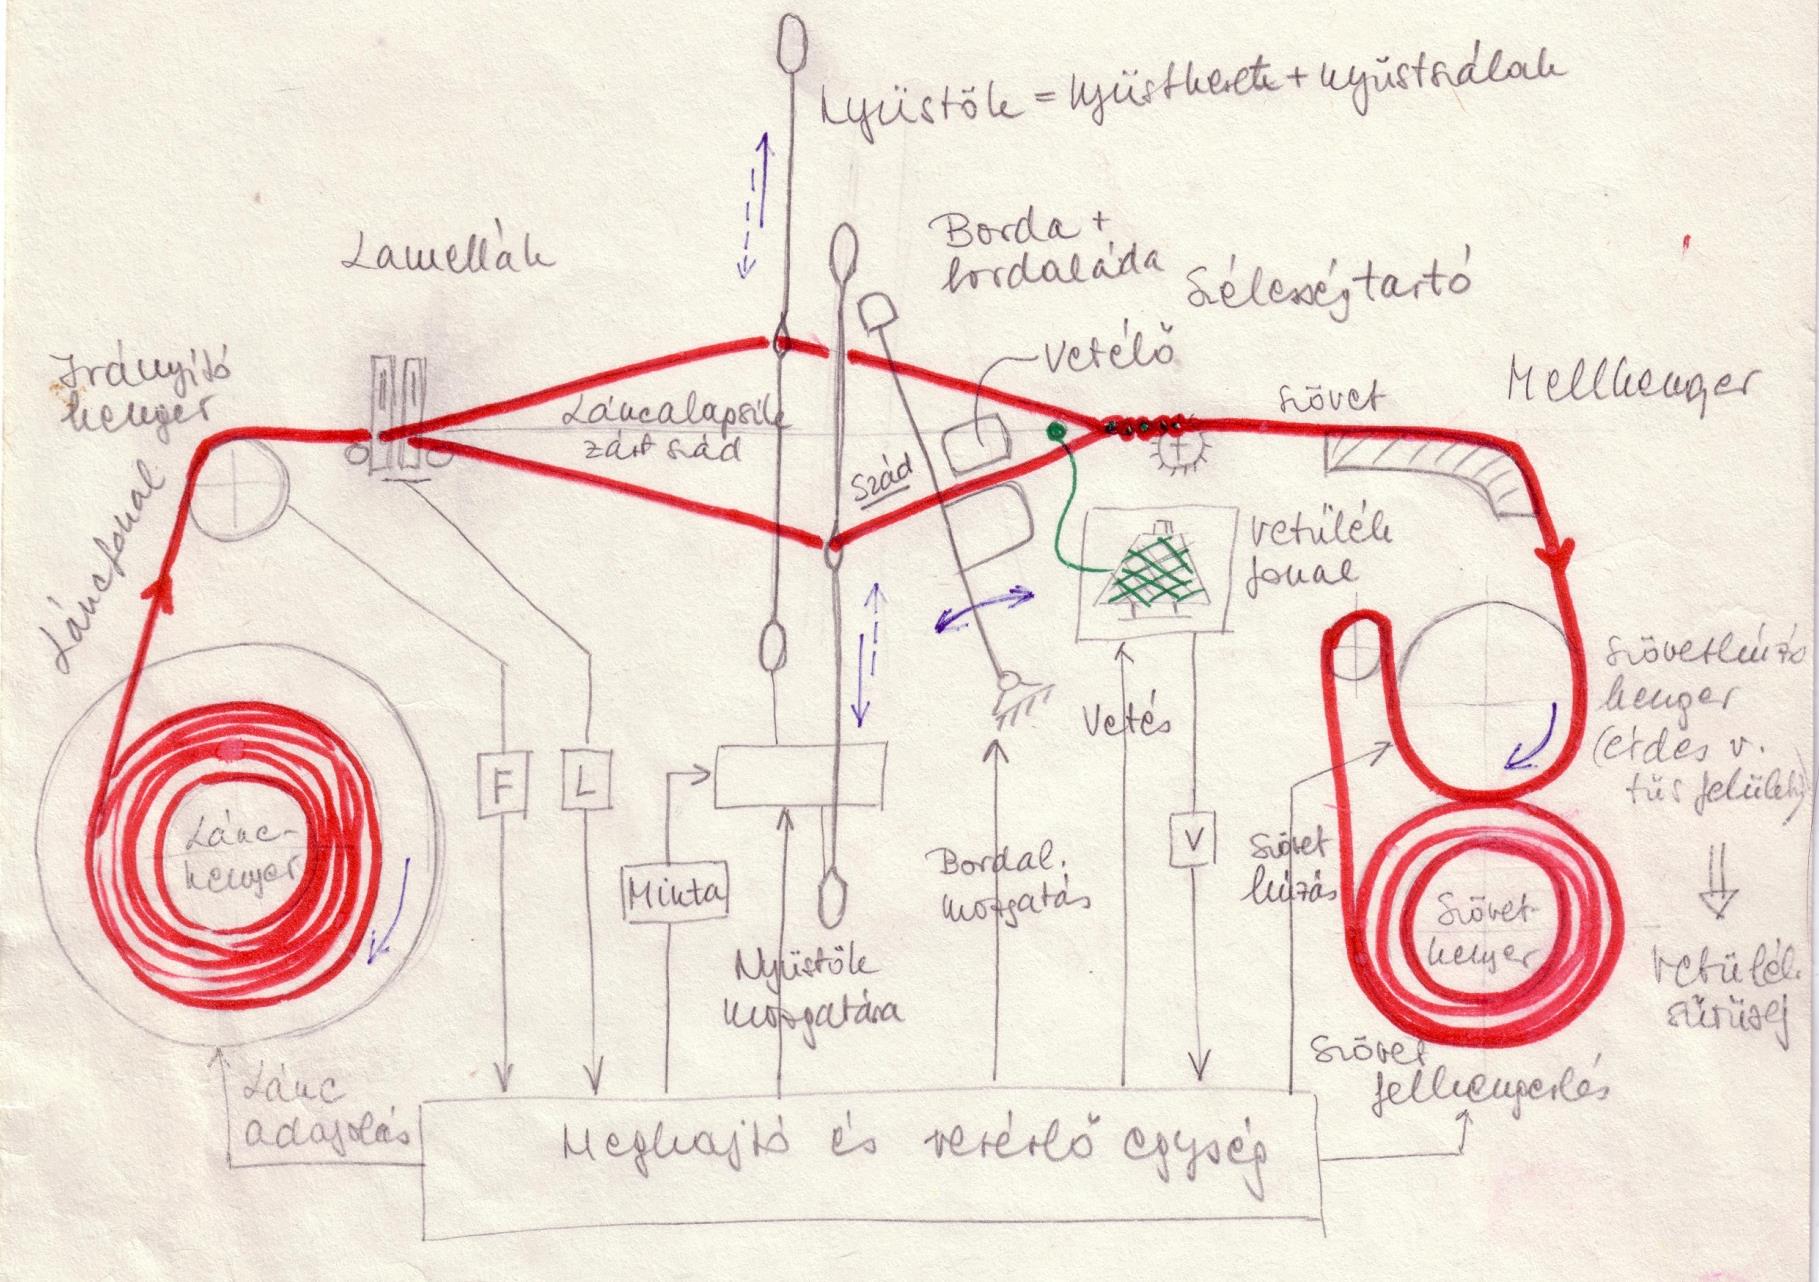 Nyüstök = nyüstkeret + nyüstszálak
Lamellák
Borda +
bordaláda
Szélességtartó
Vetélő
Irányító
henger
Mellhenger
Szövet
Láncalapsík
zárt szád
Szád
Láncfonal
Vetülék
fonal
Szövethúzó
henger
(érdes v.
tűs felület)
Vetés
F
L
V
Lánc-
henger
Minta
Bordal.
mozgatás
Szövet
húzás
Szövet-
henger
Nyüstök
mozgatása
Vetülék
sűrűség
Szövet
felhengerlés
Lánc
adagolás
Meghajtó és vezérlő egység